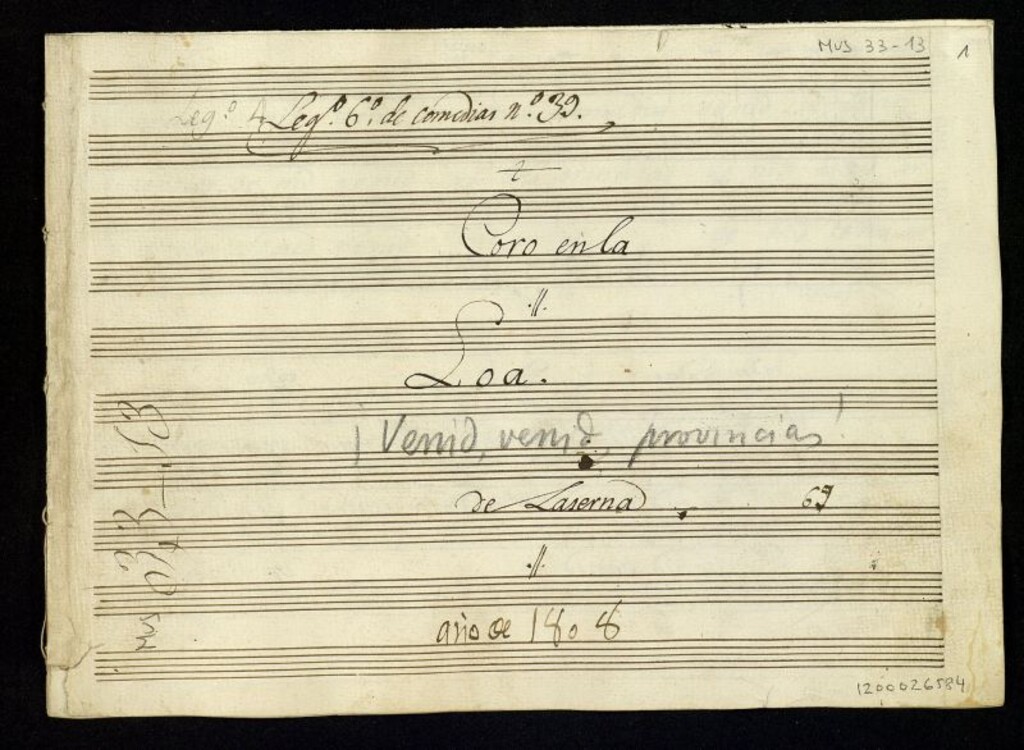 MUS 33-13
1
Leg.º 4 Leg.º 6.º de comedias n.º 39.
Coro en la
Loa.
¡Venid, venid, provincias!
de Laserna
año de 1808
MUS 33-13
1200026584